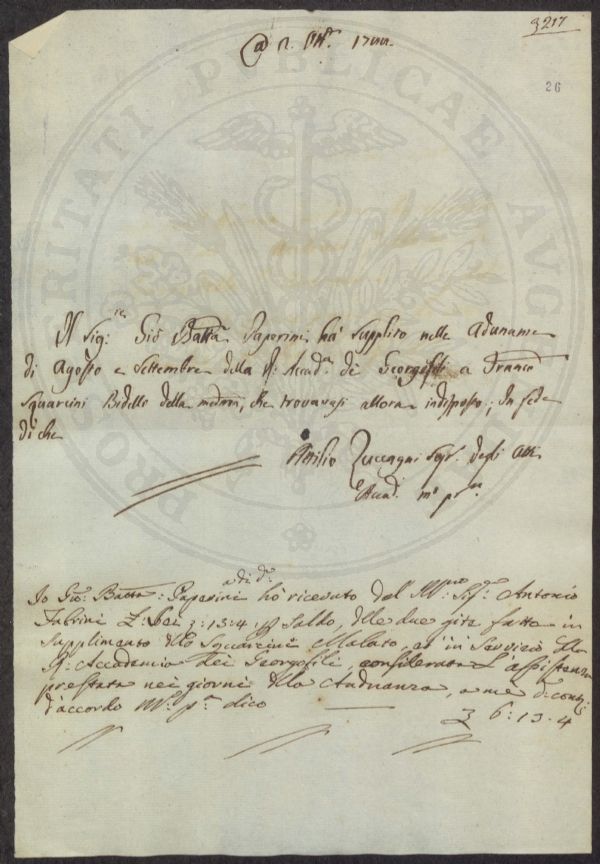 3217
26
Il Sig:re Gio Batta Paperini ha supplito nelle Adunanze
di Agosto e Settembre della R: Accad:a de Georgofili a Franco
Squarcini Bidello della medma, che trovavasi allora indisposto; In fede
di che
Attilio Zuccagni Segr. degli Atti
Accad. mo pr.
a di do
Io Gio: Batta: Paperini ho ricevuto dal Sig. Antonio
Fabrini Sei : 13 : 4 : Saldo, delle due gite fatte in
supplimento dello Squarcini Malato, in Servizio della
R: Accademia dei Georgofili, considerata l'assistenza
prestata nei giorni della Adunanza, a me
d'accordo dico
6 : 13 . 4
PROSPERITATI PUBLICAE AUGENDAE